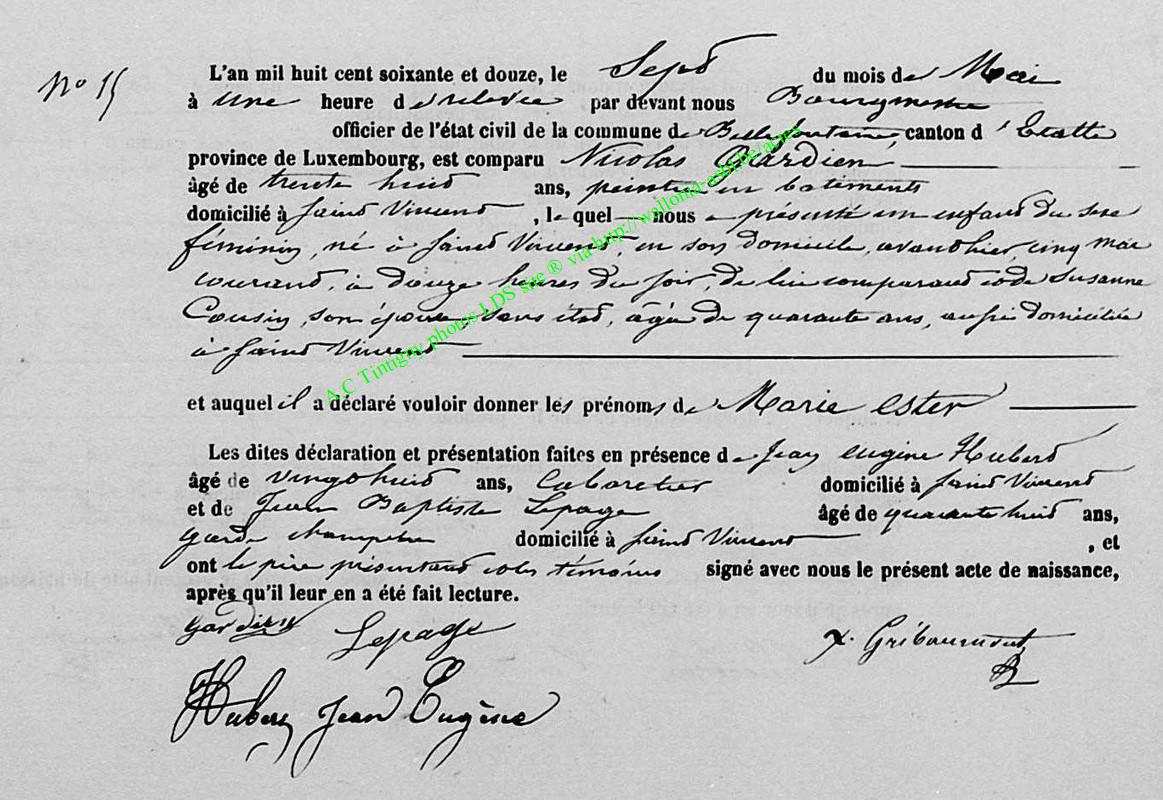 No 15
L'an mil huit cent soixante et douze, le Sept du mois de Mai
à Une heure de relevée par devant nous Bourgmestre
officier de l'état civil de la commune de Bellefontaine, canton d'Etalle
province de Luxembourg, est comparu Nicolas Gardien,
âgé de trente huit ans, peintre en batiments
domicilié à Saint Vincent, le quel nous a présenté un enfant du sexe
féminin, né à Saint Vincent, en son domicile, avanthier, cinq mai
courant, à douze heures du soir, de lui comparant et de Susanne
Cousin, son épouse, sans état, âgée de quarante ans, aussi domiciliée
à Saint Vincent
et auquel il a déclaré vouloir donner les prénoms de Marie Ester
Les dites déclaration et présentation faites en présence de Jean Eugène Hubert
âgé de vingt huit ans, Cabaretier domicilié à Saint Vincent
et de Jean Baptiste Lepage âgé de quarante huit ans,
garde champêtre domicilié à Saint Vincent, et
ont le père présentant et les témoins signé avec nous le présent acte de naissance,
après qu'il leur en a été fait lecture.
Gardien Lepage
Hubert Jean Eugène
A.C Tintigny photos LDS site ® via http://wallonia-asbl.be/actes